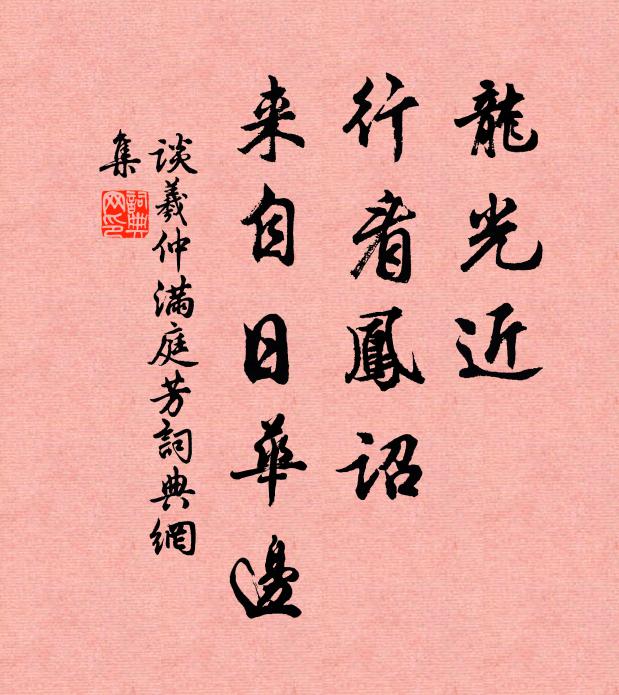 龍光近
行看鳳詔
来自日華邊
談羲仲滿庭芳詞典網
集
詞典
网印